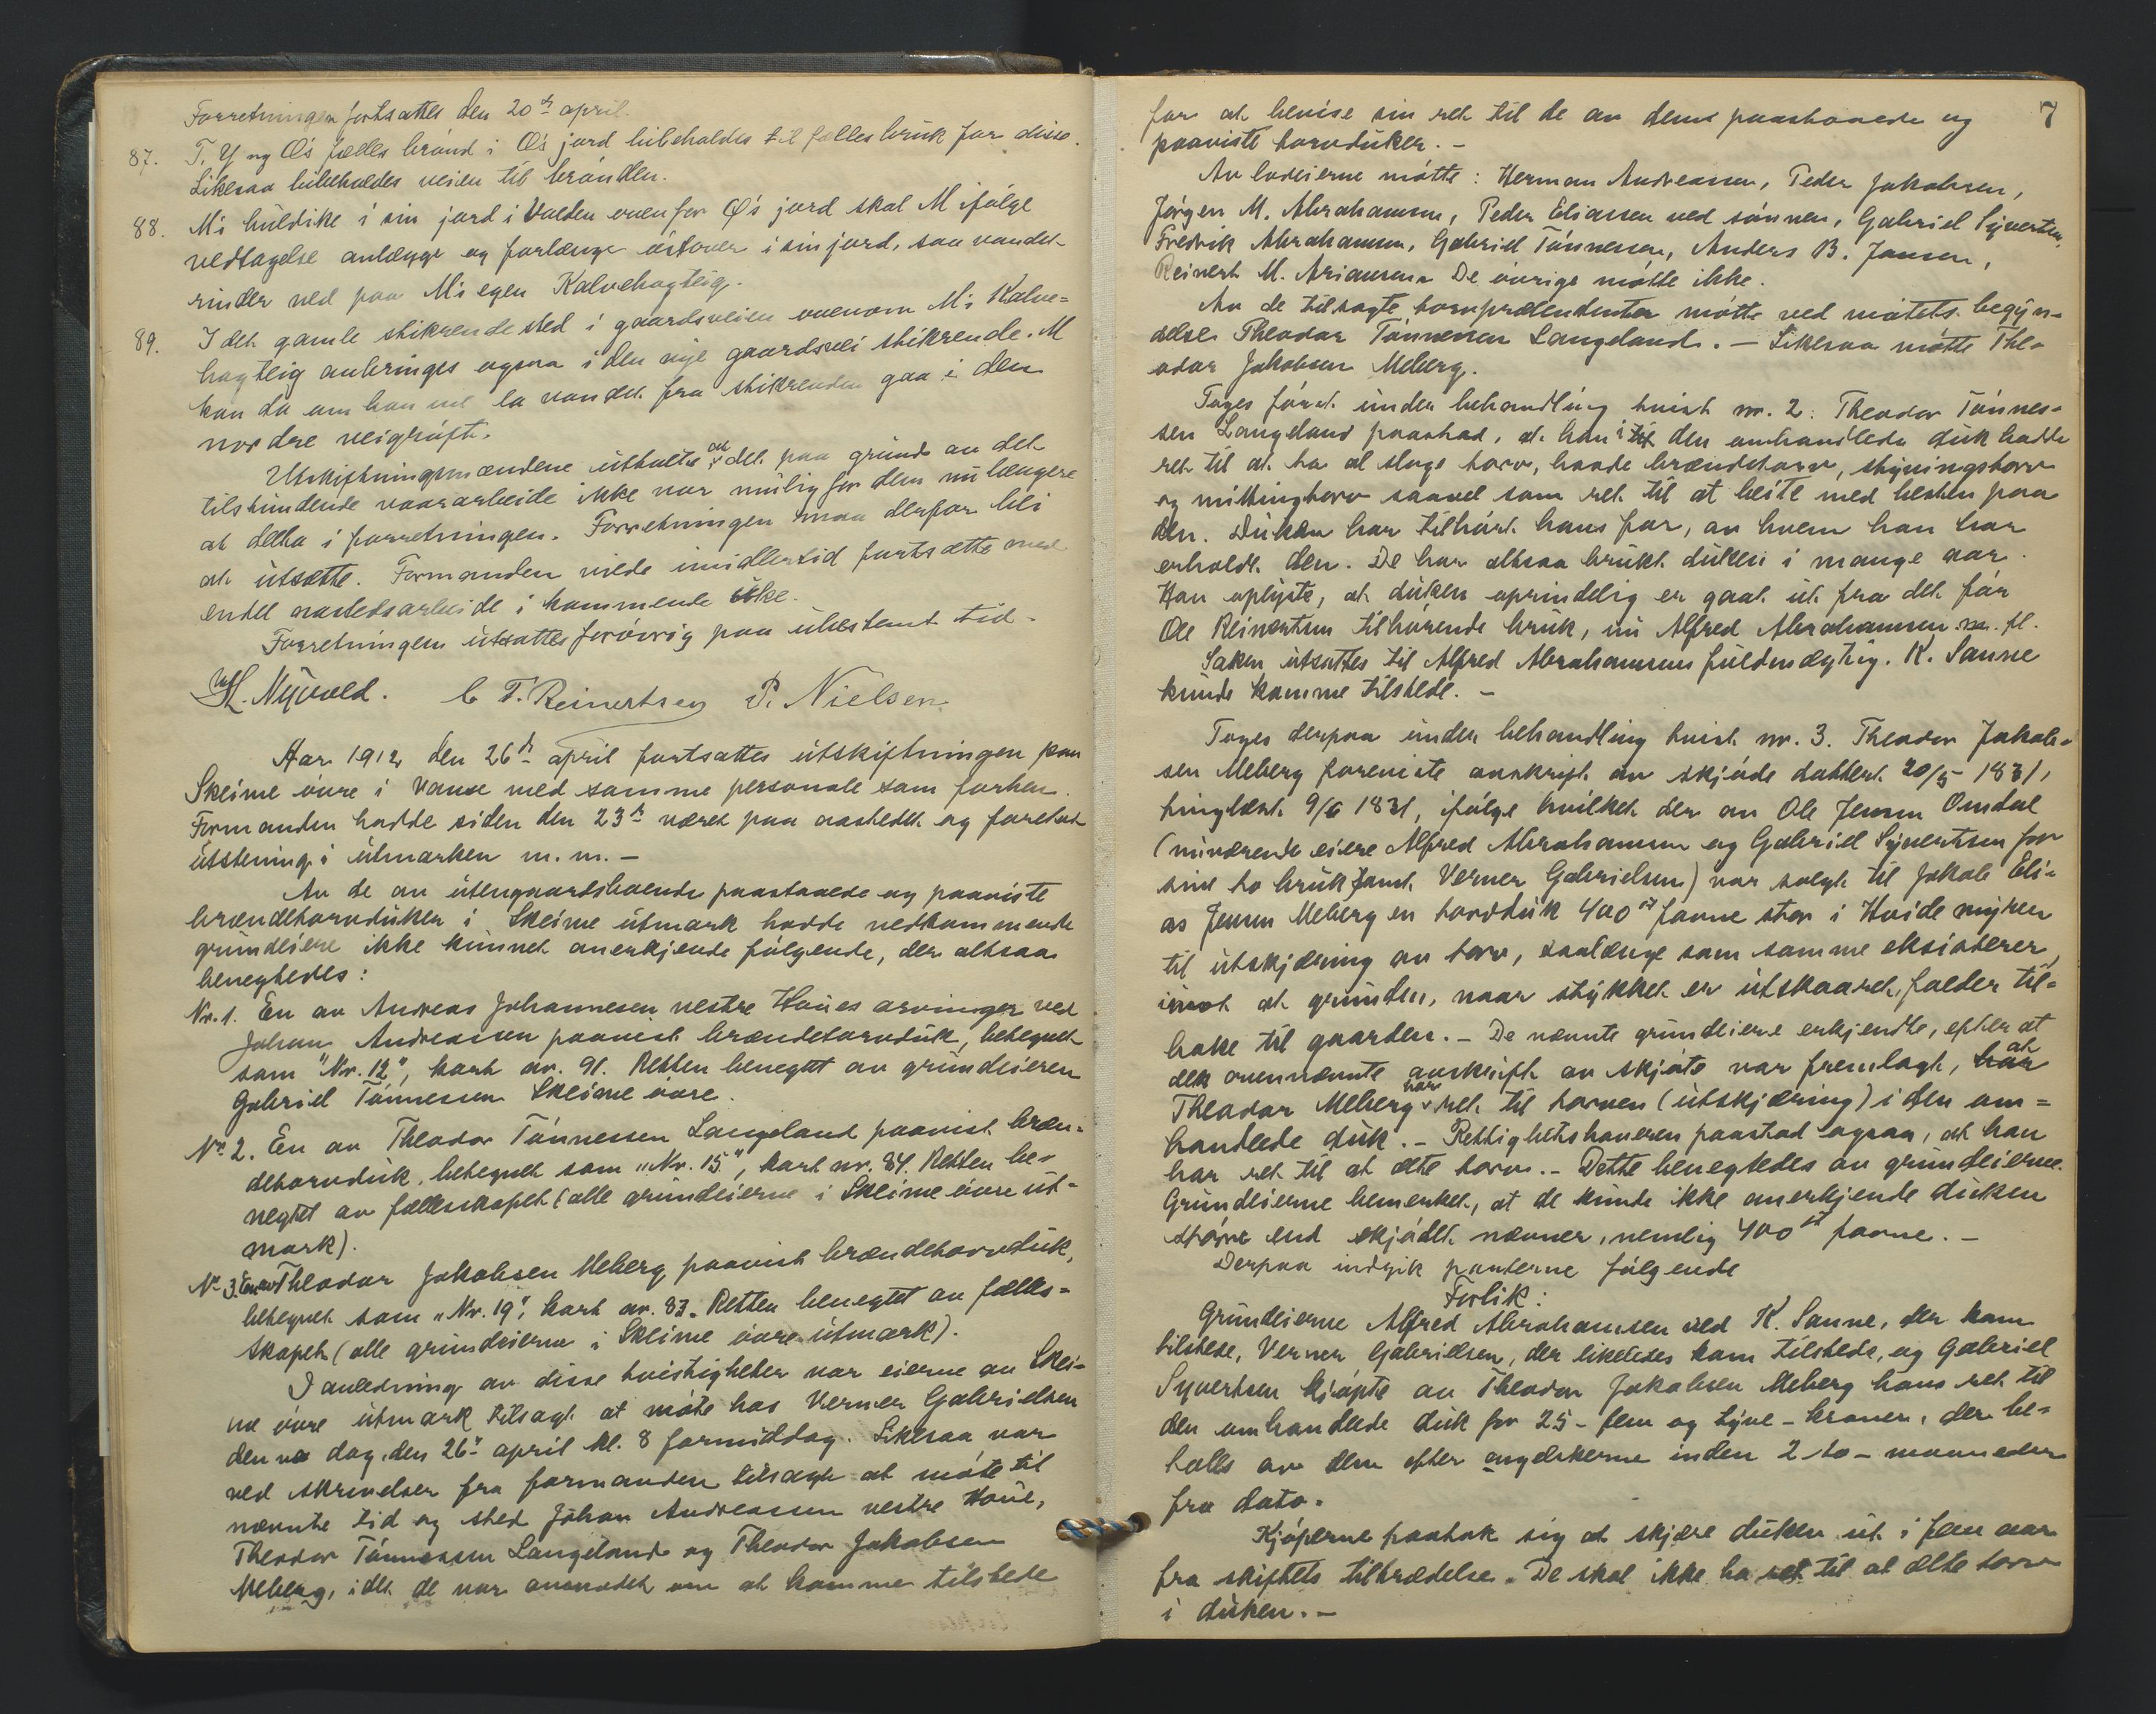 Forretningen fortsattes den 20de april.
87. T, Y og Ø's fælles brønd i Ø's jord bibeholdes til fælles bruk for disse.
Likesaa bibeholdes veien til brønden.
88. M's huldike i sin jord i Valden ovenfor Ø's jord skal M ifølge
vedtagelse anlægge og forlænge østover i sin jord, saa vandet
rinder ned paa M's egen Kalvehagteig.
89. I det gamle stikrendested i gaardsveien ovenom M's Kalve=
hagteig anbringes ogsaa i den nye gaardsvei stikrende. M
kan da om han vil la vandet fra stikrenden gaa i den
nordre veigrøft.
Utskiftningsmændene uttalte at det paa grund av det
tilstundende vaararbeide ikke var mulig for dem nu længere
at delta i forretningen. Forretningen maa derfor bli
at utsætte. Formanden vilde imidlertid fortsætte med
endel aastedsarbeide i kommende uke.
Forretningen utsattes forøvrig paa ubestemt tid.
H. Nyvold. C T. Reinertsen P. Nielsen
Aar 1912 den 26de april fortsattes utskiftningen paa
Skeime øvre i Vanse med samme personale som forhen.
Formanden hadde siden den 23de været paa aastedet og foretat
utstikning i utmarken m. m. -
Av de av utengaardsboende paastaaede og paaviste
brændetorvduker i Skeime utmark hadde vedkommende
grundeiere ikke kunnet anerkjende følgende, der altsaa
benegtedes:
Nr. 1. En av Andreas Johannesen vestre Houes arvinger ved
Johan Andreassen paavist brændetorvduk, betegnet
som "Nr. 12", kart nr. 91. Retten benegtet av grundeieren
Gabriel Tønnessen Skeime øvre.
Nr. 2. En av Theodor Tønnessen Langeland paavist bræn=
detorvduk, betegnet som "Nr. 15", kart nr. 84. Retten be=
negtet av fællesskapet (alle grundeierne i Skeime øvre ut=
mark).
Nr. 3. En av Theodor Jakobsen Meberg paavist brændetorvduk,
betegnet som "Nr. 19", kart nr. 83. Retten benegtet av fælles=
skapet (alle grundeierne i Skeime øvre utmark).
I anledning av disse tvistigheter var eierne av Skei=
me øvre utmark tilsagt at møte hos Verner Gabrielsen
denne dag, den 26de april kl. 8 formiddag. Likesaa var
ved skrivelser fra formanden tilsagt at møte til
nævnte tid og sted Johan Andreassen vestre Houe,
Theodor Tønnessen Langeland og Theodor Jakobsen
Meberg, idet de var anmodet om at komme tilstede
7
for at bevise sin ret til de av dem paastaaede og
paaviste torvduker. -
Av lodeierne møtte: Herman Andreassen, Peder Jakobsen,
Jørgen M. Abrahamsen, Peder Eliassen ved sønnen, Gabriel Syvertsen,
Fredrik Abrahamsen, Gabriel Tønnessen, Anders B. Jansen,
Reinert M. Ariansen. De øvrige møtte ikke.
Av de tilsagte torvprætendenter møtte ved møtets begyn=
delse Theodor Tønnessen Langeland. - Likesaa møtte The=
odor Jakobsen Meberg.
Toges først under behandling tvist nr. 2: Theodor Tønnes=
sen Langeland paastod, at han i den omhandlede duk hadde
ret til at ta al slags torv, baade brændetorv, skyningstorv
og mittingtorv saavel som ret til at beite med hesten paa
den. Duken har tilhørt hans far, av hvem han har
erholdt den. De har altsaa brukt duken i mange aar.
Han oplyste, at duken oprindelig er gaat ut fra det før
Ole Reinertsen tilhørende bruk, nu Alfred Abrahamsen m. fl.
Saken utsattes til Alfred Abrahamsens fuldmægtig, K. Sanne
kunde komme tilstede. -
Toges derpaa under behandling tvist nr. 3. Theodor Jakob=
sen Meberg foreviste avskrift av skjøde dattert 20/5 1831,
tinglæst 9/6 1831, ifølge hvilket der av Ole Jensen Omdal
(nuværende eiere Alfred Abrahamsen og Gabriel Syvertsen for
sine to bruk samt Verner Gabrielsen) var solgt til Jakob Eli=
as Jensen Meberg en torvduk 400 □ favne stor i Hvidemyren
til utskjæring av torv, saalænge som samme eksisterer,
imot at grunden, naar stykket er utskaaret, falder til=
bake til gaarden. - De nævnte grundeiere erkjendte, efter at
den ovennævnte avskrift av skjøte var fremlagt, at
Theodor Meberg har ret til torven (utskjæring) i den om=
handlede duk. - Rettighetshaveren paastod ogsaa, at han
har ret til at ælte torv. - Dette benegtedes av grundeierne.
Grundeierne bemerket, at de kunde ikke anerkjende duken
større end skjødet nævner, nemlig 400 □ favne. -
Derpaa indgik parterne følgende
Forlik:
Grundeierne Alfred Abrahamsen ved K. Sanne, der kom
tilstede, Verner Gabrielsen, der likeledes kom tilstede, og Gabriel
Syvertsen kjøpte av Theodor Jakobsen Meberg hans ret til
den omhandlede duk for 25 - fem og tyve - kroner, der be=
tales av dem efter angelskerne inden 2 to - maaneder
fra dato.
Kjøperne paatok sig at skjære duken ut i fem aar
fra skiftets tiltrædelse. De skal ikke ha ret til at ælte torv
i duken. -